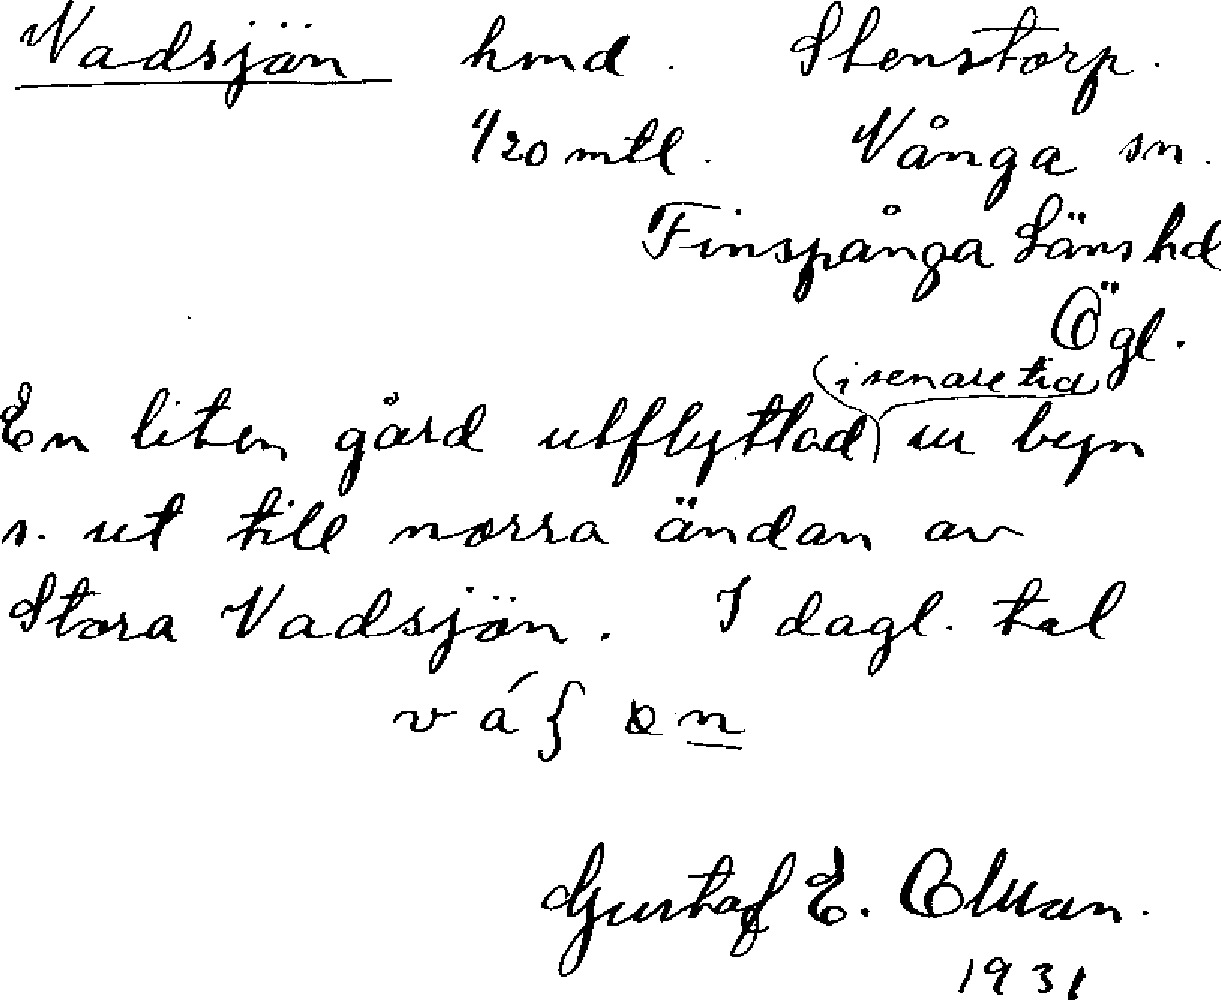 Vadsjön hmd. Stenstorp.
1/20 mtl. Vånga sn.
Finspånga Läns hd
Ögl.
i senare tid
En liten gård utflyttad ur byn
n. ut till norra ändan av
Stora Vadsjön. I dagl. tal
Gustaf E.
1931